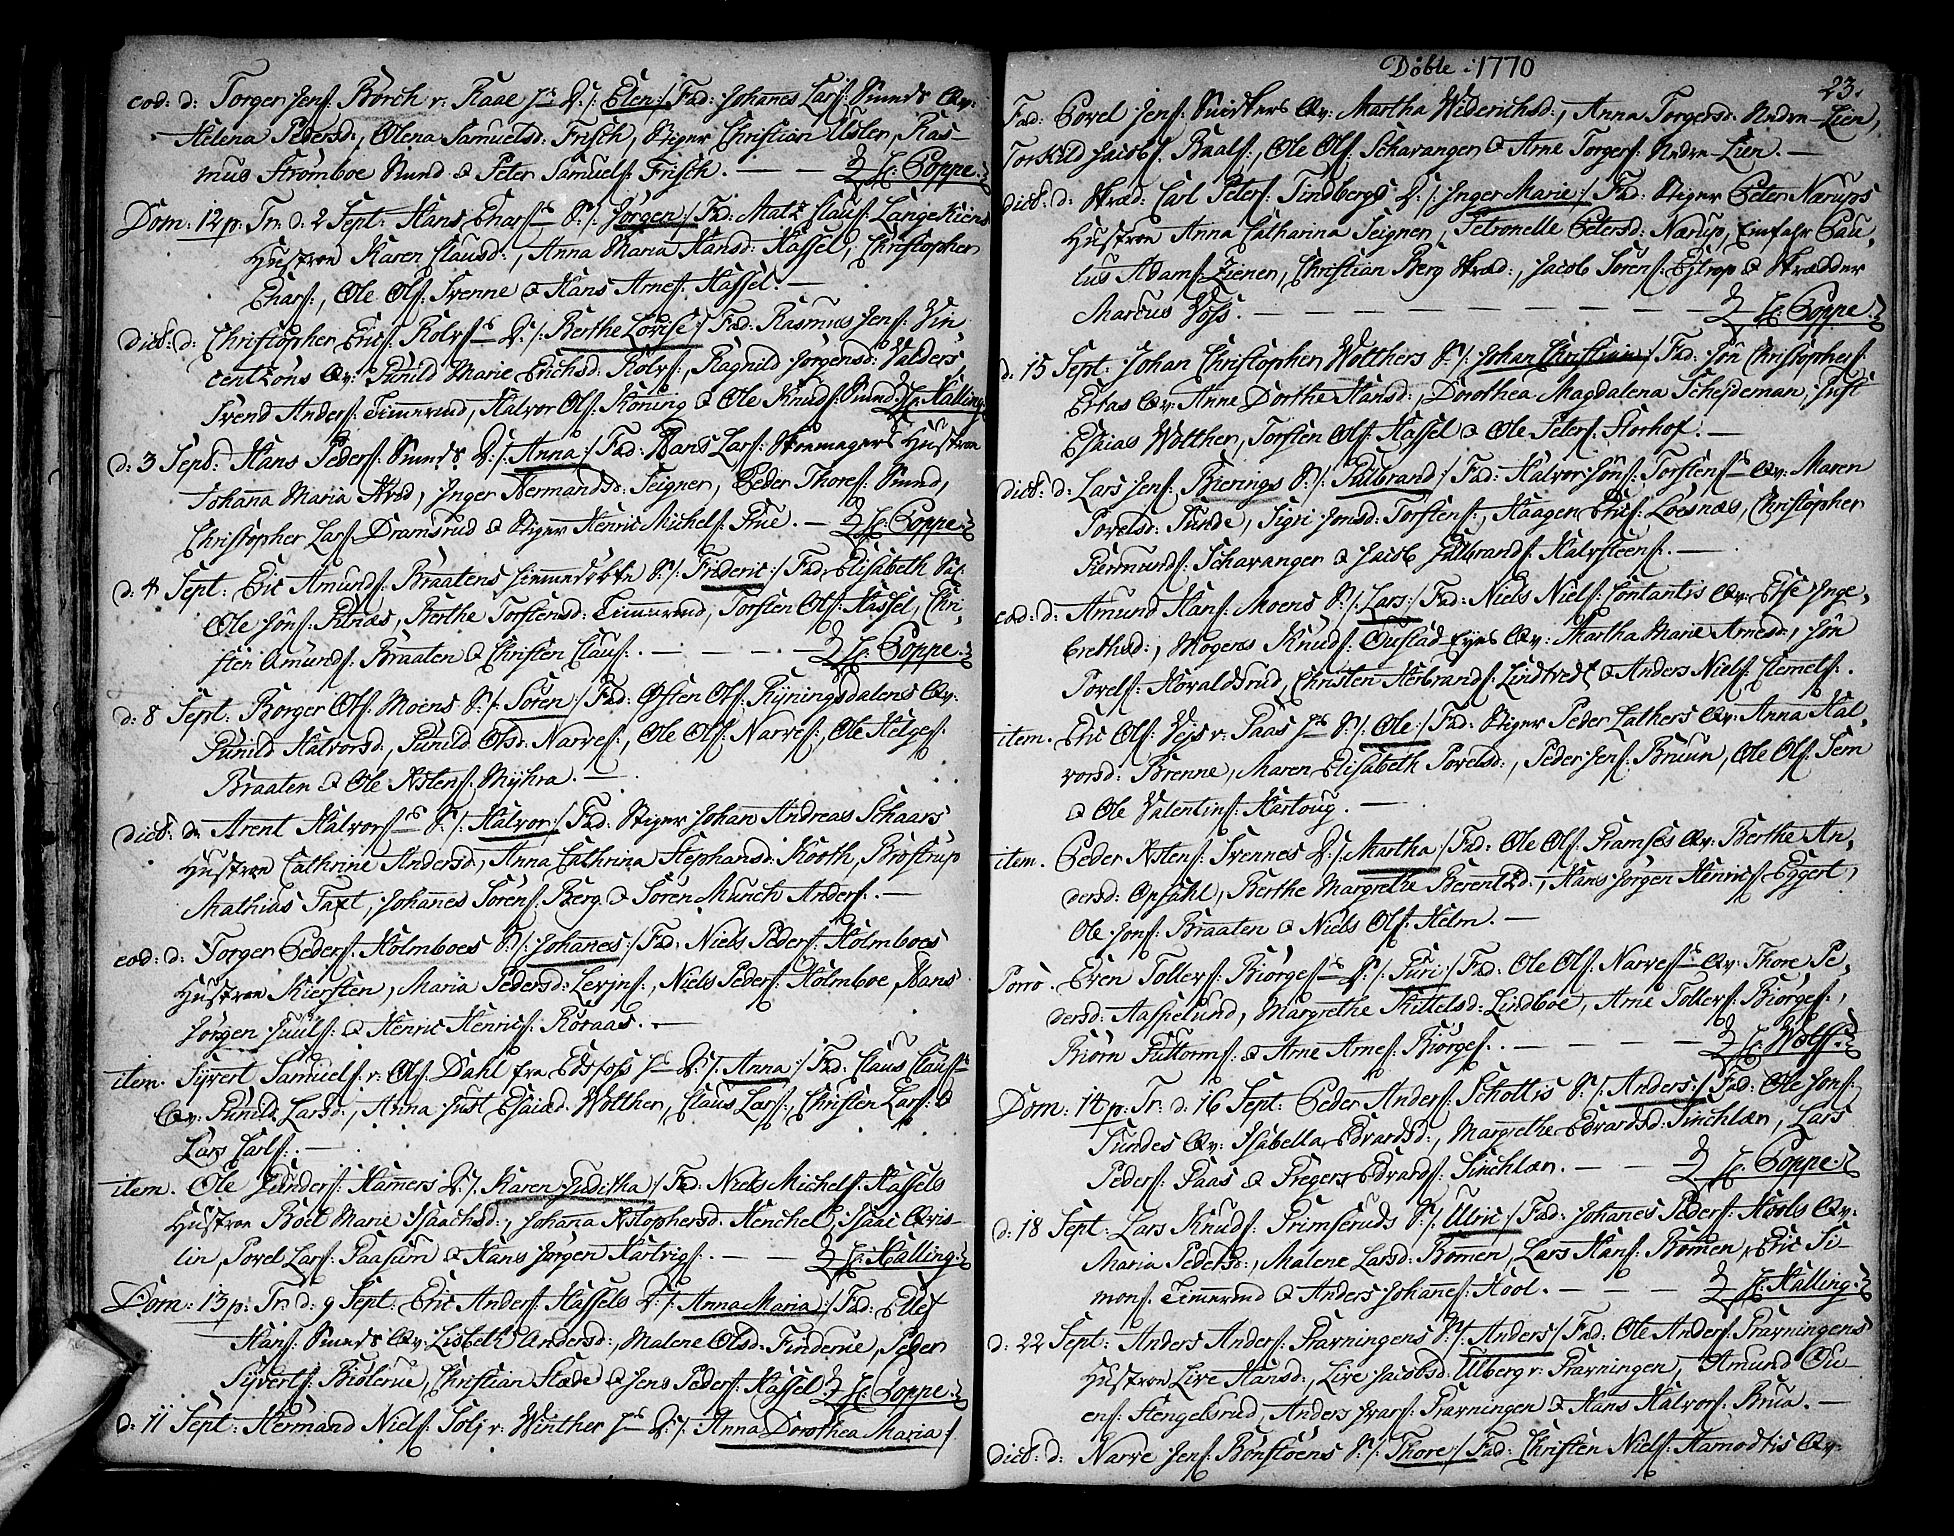 eod: d: Torger Jens: Børch v: Raae D:/: Elen:/ Fad: Johanes Lars: Smeds Qv:
Helena Pedersd:, Olena Samuelsd: Frisch, Stiger Christian Usler, Ras-
mus Strømboe Smed & Peter Samuels: Frisch. — — H: Poppe.
Dom: 12 p: Tr: d: 2 Sept: Hans Enars: S:/: Jørgen:/ Fad: Matz Claus: Langekiens
Hustroe Karen Clausd:, Anna Maria Hansd: Hassel, Christopher
Enars:, Ole Ols: Svenne & Hans Arnes: Hassel. —
dict: d: Christopher Erics: Rolvs: D:/: Berthe Lovise:/ Fad: Rasmus Jens: Vin
centzons Qv: Gunild Marie Erichsd: Rolvs:, Ragnild Jørgensd: Valders
Svend Anders: Temmerud, Halvor Ols: Koning & Ole Knuds: Smed H: Halling
d: 3 Sept: Hans Peders: Smeds D:/: Anna:/ Fad: Hans Lars: Skomagers Hustroe
Johana Maria, Inger Hermandsd: Teigner, Peder Thores: Smed,
Christopher Lars: Dramsrud & Stiger Henric Michels: Rue. — H: Poppe
d: 4 Sept: Eric Amunds: Braatens hiemedøbte S:/: Frideric:/ Fad: Elisabeth
Ole Jøns:, Berthe Torstensd: Temmerud, Torsten Ols: Hassel, Chri-
sten Amunds: Braaten & Christen Claus:. — — H: Poppe.
d: 8 Sept: Borger Ols: Moens S:/: Søren:/ Fad: Østen Ols: Ryningsdalens Qv:
Gunild Halvorsd:, Gunild Olsd: Narves:, Ole Ols: Narves:, Ole Helges:
Braaten & Ole Astens: Myhra. —
dict: d: Arent Halvors: S:/: Halvor:/ Fad: Stiger Johan Andreas Schaars
Hustroe Cathrine Andersd:, Anna Cathrina Stephansd: Korth, Brostrup
Mathias Taxt, Johanes Sørens: Berg & Søren Munch Anders:. —
eod: d: Torger Peders: Holmboes S:/: Johanes:/ Fad: Niels Peders: Holmboes
Hustroe Kiersten, Maria Pedersd: Levins:, Niels Peders: Holmboe, Hans
Jørgen Juuls: & Henric Henrics: Roraas. —
item. Syvert Samuels: v: Ols: Dahl fra Edsfoss D:/: Anna:/ Fad: Claus Claus:
Qv: Gunild Larsd:, Anna Just Esaiæd: Wolther, Claus Lars:, Christen Lars: &
Lars Carls:. —
item. Ole Gunders: Hamers D:/: Karen Juditha:/ Fad: Niels Michels: Hassels
Hustroe Boel Marie Isaachsd:, Johana Xstophersd: Henchel, Isaac Qvis-
lin, Povel Lars: Paasum & Hans Jørgen Hartvigs:. — — H: Halling.
Dom: 13 p: Tr: d: 9 Sept: Eric Anders: Hassels D:/: Anna Maria:/ Fad: Ellef
Hans: Smeds Qv: Lisbeth Andersd:, Malene Olsd: Finderue, Peder
Syverts: Biølerue, Christian Stæde & Jens Peders: Hassel H: Poppe.
d: 11 Sept: Hermand Niels: Solj v: Winther D:/: Anna Dorothea Maria:/
Døbte i 1770
23.
Fad: Povel Jens: Snidkers Qv: Martha Widerichsd:, Anna Torgersd: Nedre-Lien,
Torkild Jacobs: Baals:, Ole Ols: Schavanger & Arne Torgers: Nedre-Lien. —
dict: d: Skræd: Carl Peters: Tindbergs D:/: Inger Marie:/ Fad: Stiger Peter Nærups
Hustroe Anna Catharina Teigner, Petronelle Petersd: Nærup, Einfahr Pau-
lus Adams: Ziener, Christian Berg Skræd:, Jacob Sørens: Estrup & Skrædder
Marcus Voss. — — — H: Poppe.
d: 15 Sept: Johan Christopher Wolthers S:/: Johan Christian:/ Fad: Jøn Christophers:
Esbas Qv: Anne Dorthe Hansd:, Dorothea Magdalena Scheideman, Just
Esaias Wolther, Torsten Ols: Hassel & Ole Peters: Storhof. —
dict: d: Lars Jens: Bierings S:/: Gulbrand:/ Fad: Halvor Jøns: Torstens: Qv: Maren
Povelsd: Sunde, Sigri Jonsd: Torstens:, Haagen Erics: Løesnæs, Christopher
Giermunds: Schavanger & Jacob Gulbrands: Halvsteens:. —
eod: d: Amund Hans: Moens S:/: Lars:/ Fad: Niels Niels: Fontantis Qv: Else Inge-
brethsd:, Mogens Knuds: Oustad Eyes Qv: Martha Marie Arnesd:, Jøn
Povels: Horaldsrud, Christen Herbrands: Lindtvedt & Anders Niels: Clemets:.
item. Eric Ols: Vejs v: Paas S:/: Ole:/ Fad: Stiger Peder Lathers Qv: Anna Hal-
vorsd: Brenne, Maren Elisabeth Povelsd:, Peder Jens: Bruun, Ole Ols: Tem
& Ole Valentins: Hartoug. —
item. Peder Astens: Svennes D:/: Martha:/ Fad: Ole Ols: Ramses Qv: Berthe An-
dersd: Opsahl, Berthe Margrethe Berentzd:, Hans Jørgen Henrics: Eggert,
Ole Jons: Braaten & Niels Ols: Helm. —
Porro. Even Tollefs: Biørges: D:/: Guri:/ Fad: Ole Ols: Narves: Qv: Thore Pe-
dersd: Aaspelund, Margrethe Kittelsd: Lindboe, Arne Tollefs: Biørges:,
Biørn Guttorms: & Arne Arnes: Biørges:. — — — H: Wolff.
Dom: 14 p: Tr: d: 16 Sept: Peder Anders: Schottis S:/: Anders:/ Fad: Ole Jons:
Sundes Qv: Isabella Edvardsd:, Margrethe Edvardsd: Sinchlær, Lars
Peders: Paas & Gregers Edvards: Sinchlær. — — H: Poppe.
d: 18 Sept: Lars Knuds: Grimseruds S:/: Ulric:/ Fad: Johanes Peders: Hoels Qv:
Maria Pedersd:, Malene Larsd: Bømen, Lars Hans: Bømen, Eric Si-
mons: Temmerud & Anders Johanes: Hool. — — — H: Halling.
d: 22 Sept: Anders Anders: Pravningens S:/: Anders:/ Fad: Ole Anders: Pravningens
Hustroe Live Hansd:, Live Jacobsd: Ulberg v: Pravningen, Amund Ou-
ens: Hengelsrud, Anders Ivars: Pravningen & Hans Halvors: Brua. —
dict: d: Narve Jens: Bønstøens S:/: Thore:/ Fad: Christen Niels: Hamodtis Qv: